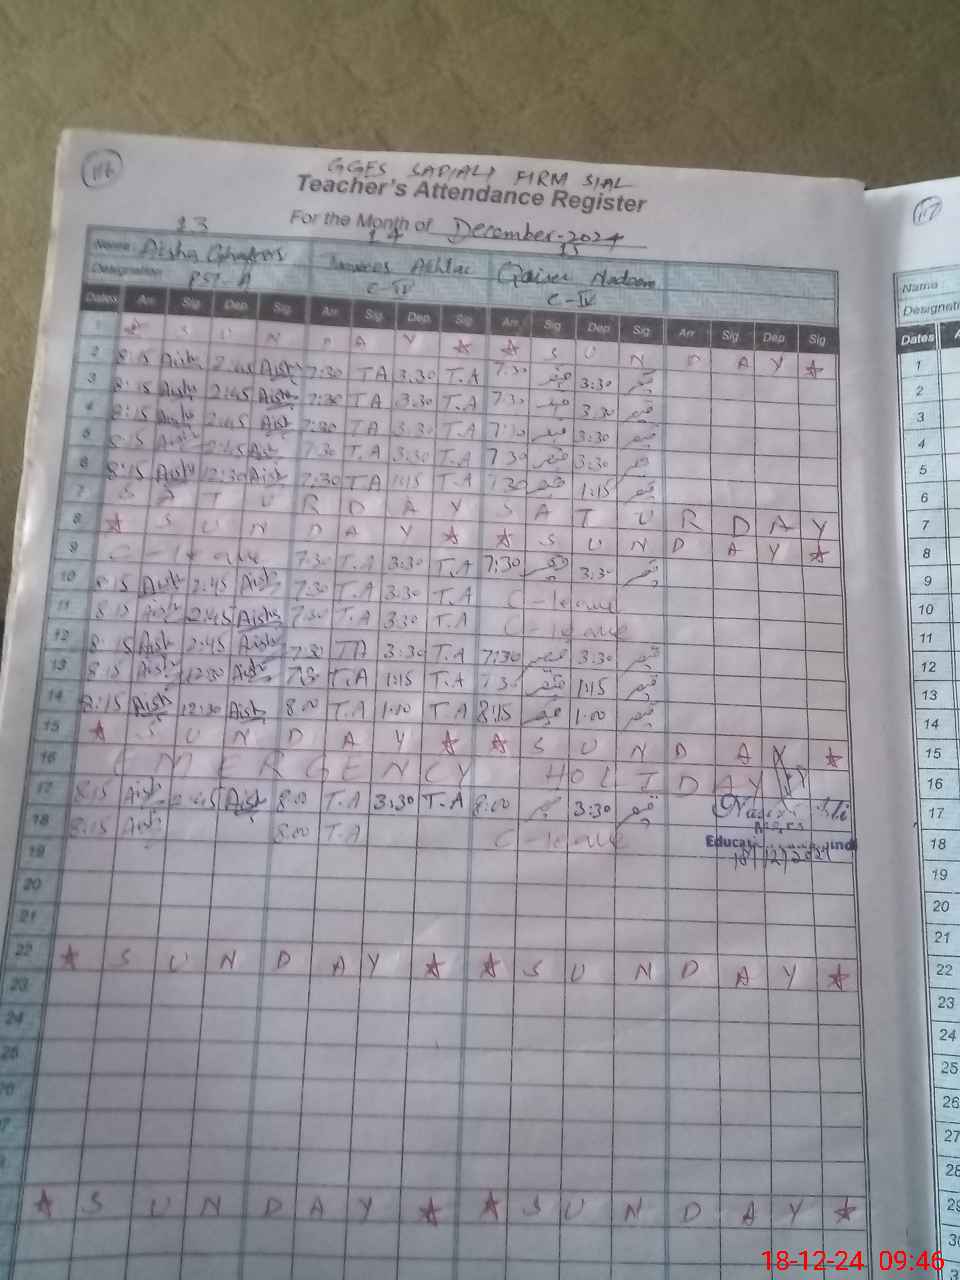 116
GGES SADIALI FIRM SIAL
Teacher's Attendance Register
For the Month of December-2024
13 14 15
Name Aisha
Designation PST-A C-IV C-IV
117
Name
Designati
Dates Arr Sig Dep Sig Arr Sig Dep Sig Arr Sig Dep Sig Arr Sig Dep Sig
Dates A
1 ☆ S U N D A Y ☆ ☆ S U N D A Y ☆
2 8:15 Aish 2:45 Aish 7:30 TA 3:30 T.A 7:30 قیصر 3:30 قیصر
3 8:15 Aish 2:45 Aish 7:30 TA 3:30 T.A 7:30 قیصر 3:30 قیصر
4 8:15 Aish 2:45 Aish 7:30 TA 3:30 T.A 7:30 قیصر 3:30 قیصر
5 8:15 Aish 2:45 Aish 7:30 T.A 3:30 T.A 7:30 قیصر 3:30 قیصر
6 8:15 Aish 12:30 Aish 7:30 TA 1:15 T.A 7:30 قیصر 1:15 قیصر
7 S A T U R D A Y S A T U R D A Y
8 ☆ S U N D A Y ☆ ☆ S U N D A Y ☆
9 C-leave 7:30 T.A 3:30 T.A 7:30 قیصر 3:30 قیصر
10 8:15 Aish 2:45 Aish 7:30 T.A 3:30 T.A C-leave
11 8:15 Aish 2:45 Aish 7:30 T.A 3:30 T.A C-leave
12 8:15 Aish 2:45 Aish 7:30 TA 3:30 T.A 7:30 قیصر 3:30 قیصر
13 8:15 Aish 12:30 Aish 7:30 T.A 1:15 T.A 7:30 قیصر 1:15 قیصر
14 8:15 Aish 12:30 Aish 8:00 T.A 1:00 T.A 8:15 قیصر 1:00 قیصر
15 ☆ S U N D A Y ☆ ☆ S U N D A Y ☆
16 EMERGENCY HOLIDAY
17 8:15 Aish 2:45 Aish 8:00 T.A 3:30 T.A 8:00 قیصر 3:30 قیصر
18 8:15 Aish 8:00 T.A C-leave
18/12/2024
19
20
21
22 ☆ S U N D A Y ☆ ☆ S U N D A Y ☆
23
24
25
☆ S U N D A Y ☆ ☆ S U N D A Y ☆
1
2
3
4
5
6
7
8
9
10
11
12
13
14
15
16
17
18
19
20
21
22
23
24
25
26
27
28
29
30
18-12-24 09:46